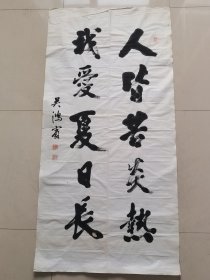 人皆苦炎熱
我愛夏日長
吴鴻賓